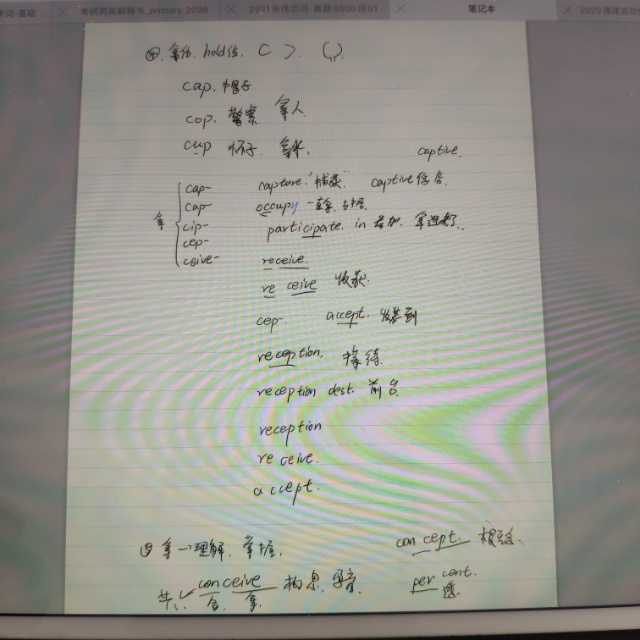 考研英解释书_primary_2000
2021朱伟恋词-真题5500词01
笔记本
拿住. hold住. C
cap. 帽子
cop. 警察 拿人
cup 杯子. 拿水.
captive.
拿
cap- capture "捕获" captive俘虏
cup- occupy 一直拿, 占据
cip- participate in 参加. 拿进来了.
cep-
ceive- receive
re ceive 收获
cep- accept. 收到
reception. 接待
reception dest. 前台
reception
re ceive.
accept.
拿→理解. 掌握.
con cept. 概念.
conceive 构思. 怀孕
共 拿
per cent.
透